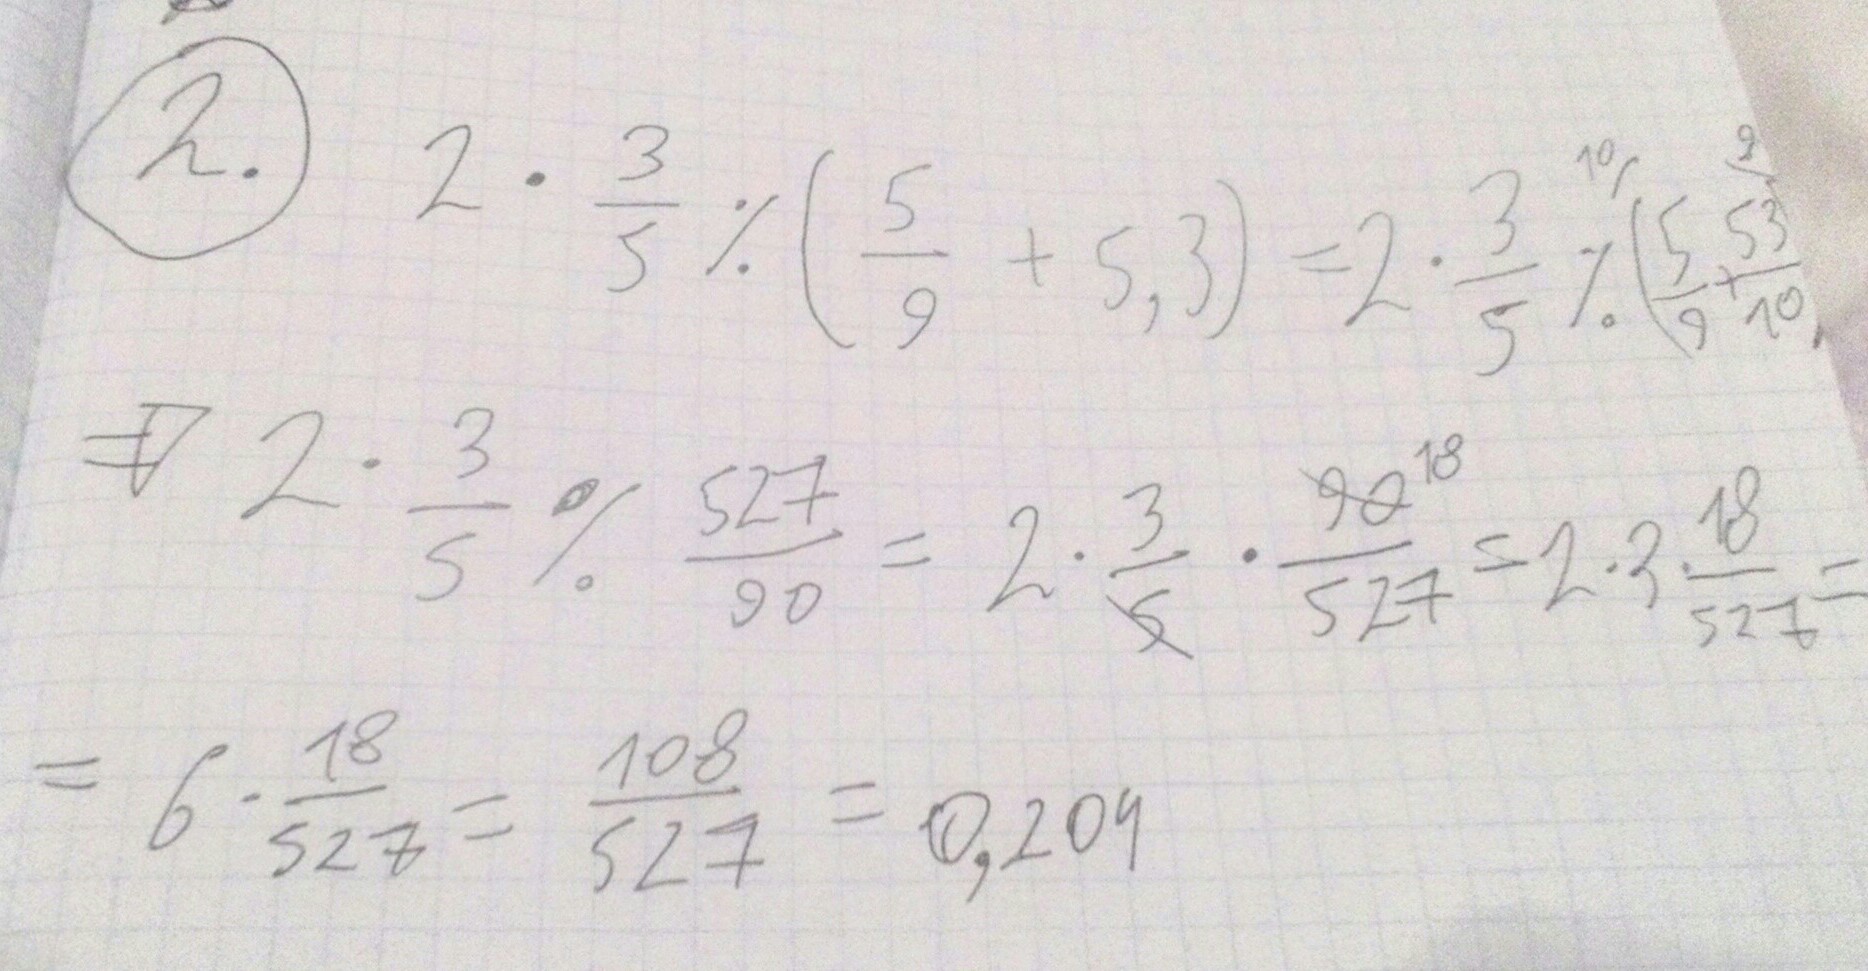 2. 2 · 3/5 ٪ (5/9 + 5,3) = 2 · 3/5 ٪ (10/ 5/9 + 9/ 53/10)
⇒ 2 · 3/5 ٪ 527/90 = 2 · 3/5 · 90/527 18 = 2 · 3 · 18/527 =
= 6 · 18/527 = 108/527 = 0,204